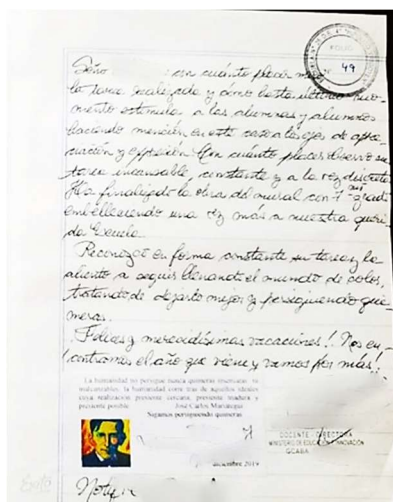 FOLIO
Nº 49
Seño : con cuánto placer
la tarea realizada y cómo hasta último mo-
mento estimula a las alumnas y alumnos
haciendo mención en este caso a los ejes de apre-
ciación y expresión. Con cuánto placer observo su
tarea incansable, constante y a la vez discreta.
Ha finalizado la obra del mural con 7º grado
embelleciendo una vez más a nuestra queri-
da Escuela.
Reconozco en forma constante su tarea y la
aliento a seguir llenando el mundo de color,
tratando de dejarlo mejor y persiguiendo qui-
meras.
¡Felices y merecidísimas vacaciones! Nos en-
contramos el año que viene y vamos por más!
La humanidad no persigue nunca quimeras insensatas ni
inalcanzables, la humanidad corre tras de aquellos ideales
cuya realización presiente cercana, presiente madura y
presiente posible. José Carlos Mariátegui
Sigamos persiguiendo quimeras
diciembre 2019
DOCENTE - DIRECTORA
MINISTERIO DE EDUCACIÓN E INNOVACIÓN
GCABA